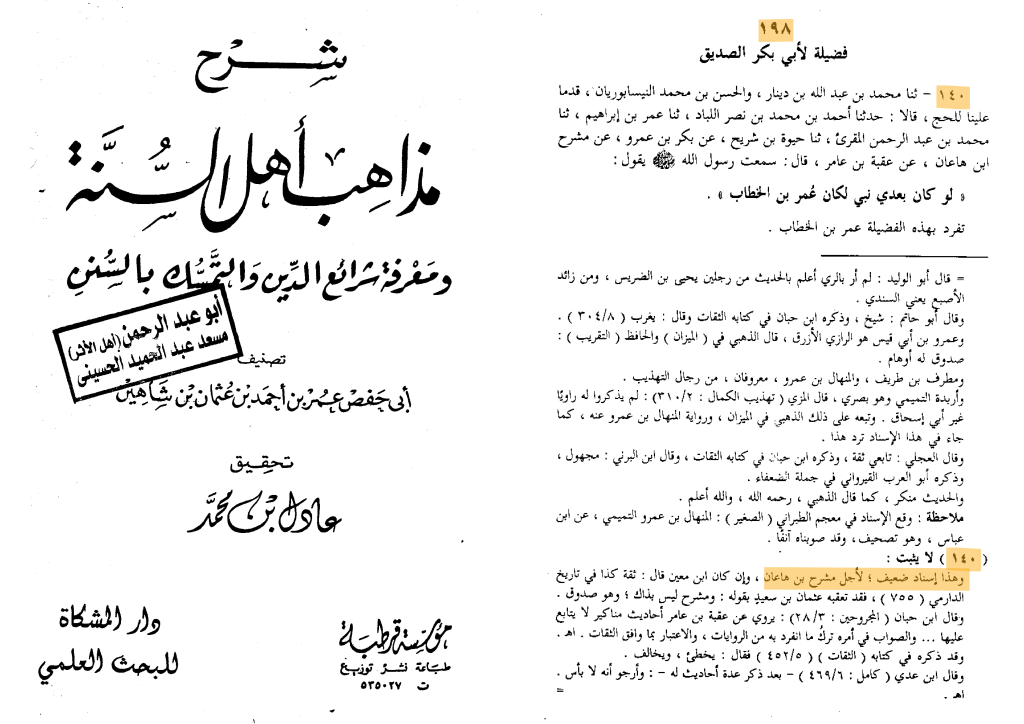 شرح
مذاهب أهل السُّنَّة
ومَعْرفة شرائع الدِّين وَالتمسُّك بالسُّنن
أبو عبد الرحمن (أهل الأثر)
مسعد عبد الحميد الحسينى
تصنيف
أبى حَفص عمر بن أحمد بن عُثمان بن شاهين
تحقيق
عادل بن محمَّد
مؤسسة قرطبة
طباعة نشر توزيع
ت ٥٣٥٠٢٧
دار المشكاة
للبحث العلمي
١٩٨
فضيلة لأبي بكر الصديق
١٤٠ – ثنا محمد بن عبد الله بن دينار ، والحسن بن محمد النيسابوريان ، قدما
علينا للحج ، قالا : حدثنا أحمد بن محمد بن نصر اللباد ، ثنا عمر بن إبراهيم ، ثنا
محمد بن عبد الرحمن المقرئ ، ثنا حيوة بن شريح ، عن بكر بن عمرو ، عن مشرح
ابن هاعان ، عن عقبة بن عامر ، قال : سمعت رسول الله ﷺ يقول :
« لو كان بعدي نبي لكان عُمر بن الخطاب » .
تفرد بهذه الفضيلة عمر بن الخطاب .
= قال أبو الوليد : لم أر بالري أعلم بالحديث من رجلين يحيى بن الضريس ، ومن زائد
الأصبع يعني السندي .
وقال أبو حاتم : شيخ ، وذكره ابن حبان في كتابه الثقات وقال : يغرب ( ٣٠٤/٨ ) .
وعمرو بن أبي قيس هو الرازي الأزرق ، قال الذهبي في ( الميزان ) والحافظ ( التقريب ) :
صدوق له أوهام .
ومطرف بن طريف ، والمنهال بن عمرو ، معروفان ، من رجال التهذيب .
وأربدة التميمي وهو بصري ، قال المزي ( تهذيب الكمال : ٣١٠/٢) : لم يذكروا له راويًا
غير أبي إسحاق . وتبعه على ذلك الذهبي في الميزان ، ورواية المنهال بن عمرو عنه ، كما
جاء في هذا الإسناد ترد هذا .
وقال العجلي : تابعي ثقة ، وذكره ابن حبان في كتابه الثقات ، وقال ابن البرني : مجهول ،
وذكره أبو العرب القيرواني في جملة الضعفاء .
والحديث منكر ، كما قال الذهبي ، رحمه الله ، والله أعلم .
ملاحظة : وقع الإسناد في معجم الطبراني ( الصغير ) : المنهال بن عمرو التميمي ، عن ابن
عباس ، وهو تصحيف، وقد صوبناه آنفًا .
( ١٤٠ ) لا يثبت :
وهذا إسناد ضعيف ؛ لأجل مشرح بن هاعان ، وإن كان ابن معين قال : ثقة كذا في تاريخ
الدارمي ( ٧٥٥ ) ، فقد تعقبه عثمان بن سعيدٍ بقوله : ومشرح ليس بذاك ؛ وهو صدوق .
وقال ابن حبان ( المجروحين : ٢٨/٣) : يروي عن عقبة بن عامر أحاديث مناكير لا يتابع
عليها ... والصواب في أمره تركُ ما انفرد به من الروايات ، والاعتبار بما وافق الثقات . اهـ .
وقد ذكره في كتابه ( الثقات ) ( ٤٥٢/٥ ) فقال : يخطئ ، ويخالف .
وقال ابن عدي ( كامل : ٤٦٩/٦ ) – بعد ذكر عدة أحاديث له – : وأرجو أنه لا بأس .
اهـ . =